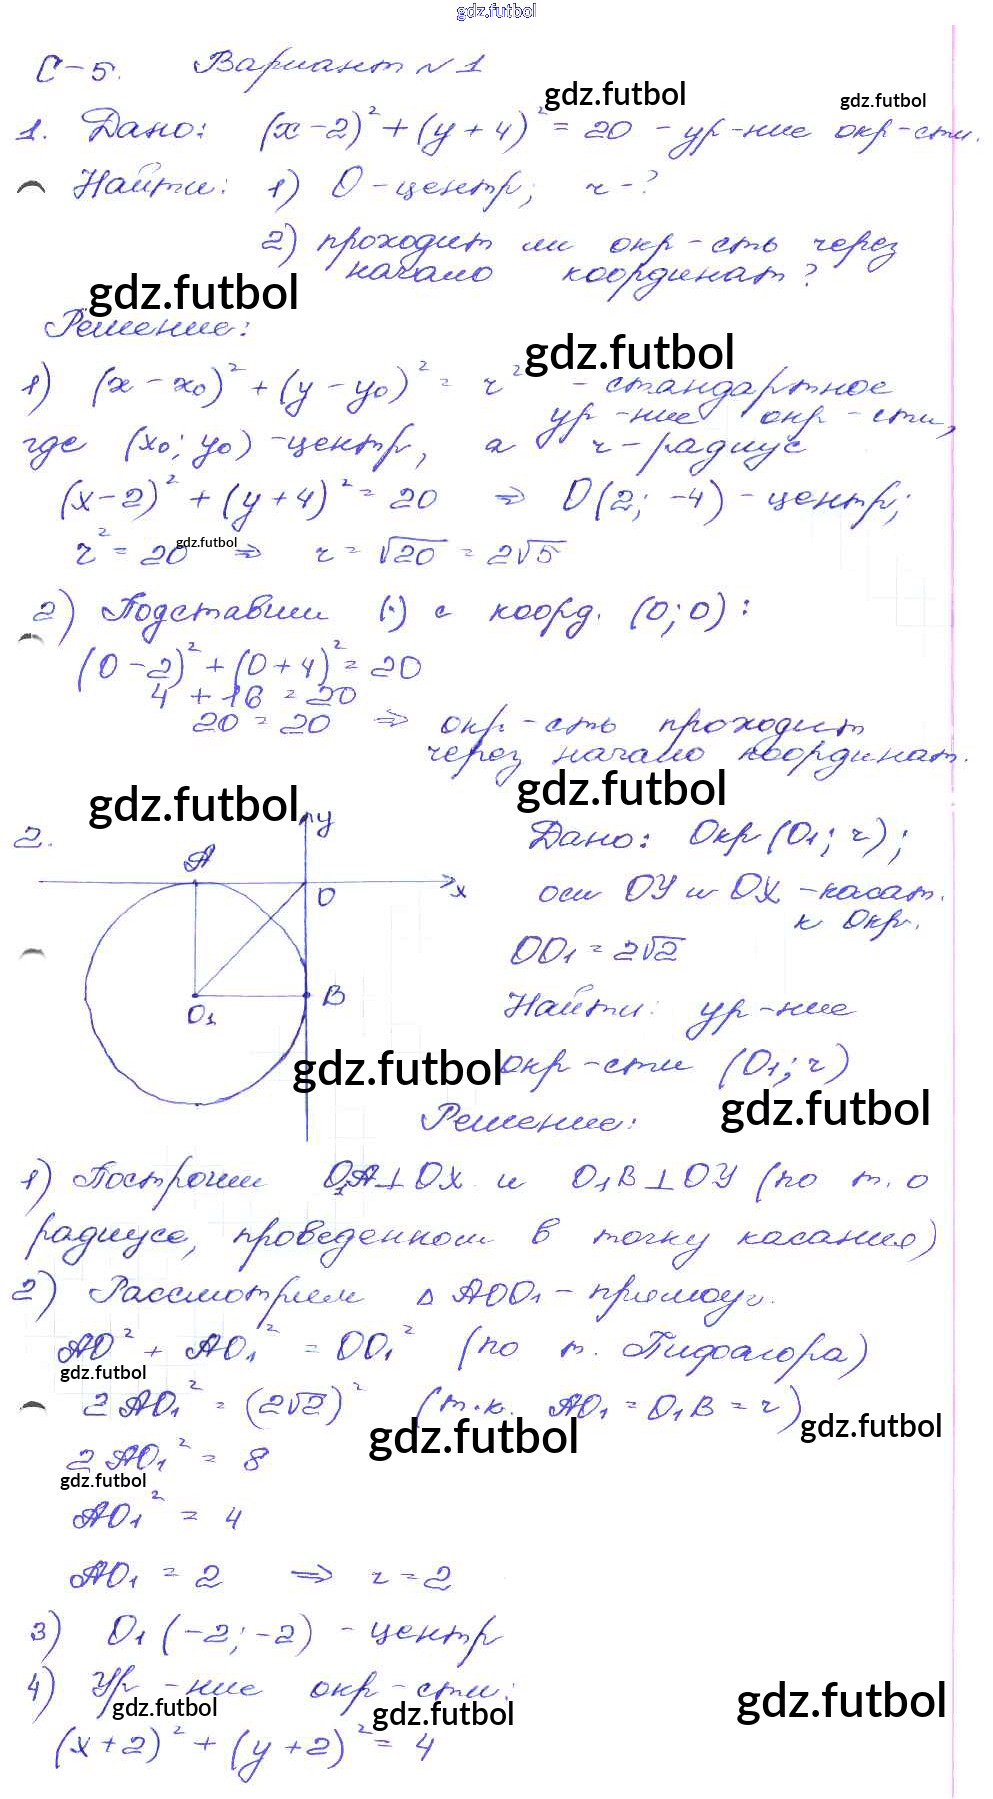 gdz.futbol
С-5. Вариант №1
gdz.futbol gdz.futbol
1. Дано: (x-2)² + (y+4)² = 20 - ур-ние окр-сти.
Найти: 1) O - центр; r - ?
2) проходит ли окр-сть через
начало координат?
gdz.futbol
Решение:
gdz.futbol
1) (x - x₀)² + (y - y₀)² = r² - стандартное
ур-ние окр-сти,
где (x₀; y₀) - центр, а r - радиус
(x-2)² + (y+4)² = 20 ⇒ O(2; -4) - центр;
gdz.futbol
r² = 20 ⇒ r = √20 = 2√5
2) Подставим (·) с коорд. (0; 0):
(0-2)² + (0+4)² = 20
4 + 16 = 20
20 = 20 ⇒ окр-сть проходит
через начало координат.
gdz.futbol gdz.futbol
2. y
A
x
O
B
O₁
Дано: Окр(O₁; r);
оси OY и OX - касат.
к Окр.
OO₁ = 2√2
Найти: ур-ние
окр-сти (O₁; r)
gdz.futbol
gdz.futbol
Решение:
1) Построим O₁A⊥OX и O₁B⊥OY (по т. о
радиусе, проведенном в точку касания)
2) Рассмотрим Δ AOO₁ - прямоуг.
AO² + AO₁² = OO₁² (по т. Пифагора)
gdz.futbol
2AO₁² = (2√2)² (т.к. AO₁ = O₁B = r)
gdz.futbol gdz.futbol
2AO₁² = 8
gdz.futbol
AO₁² = 4
AO₁ = 2 ⇒ r = 2
3) O₁(-2; -2) - центр
4) Ур-ние окр-сти:
gdz.futbol gdz.futbol gdz.futbol
(x+2)² + (y+2)² = 4